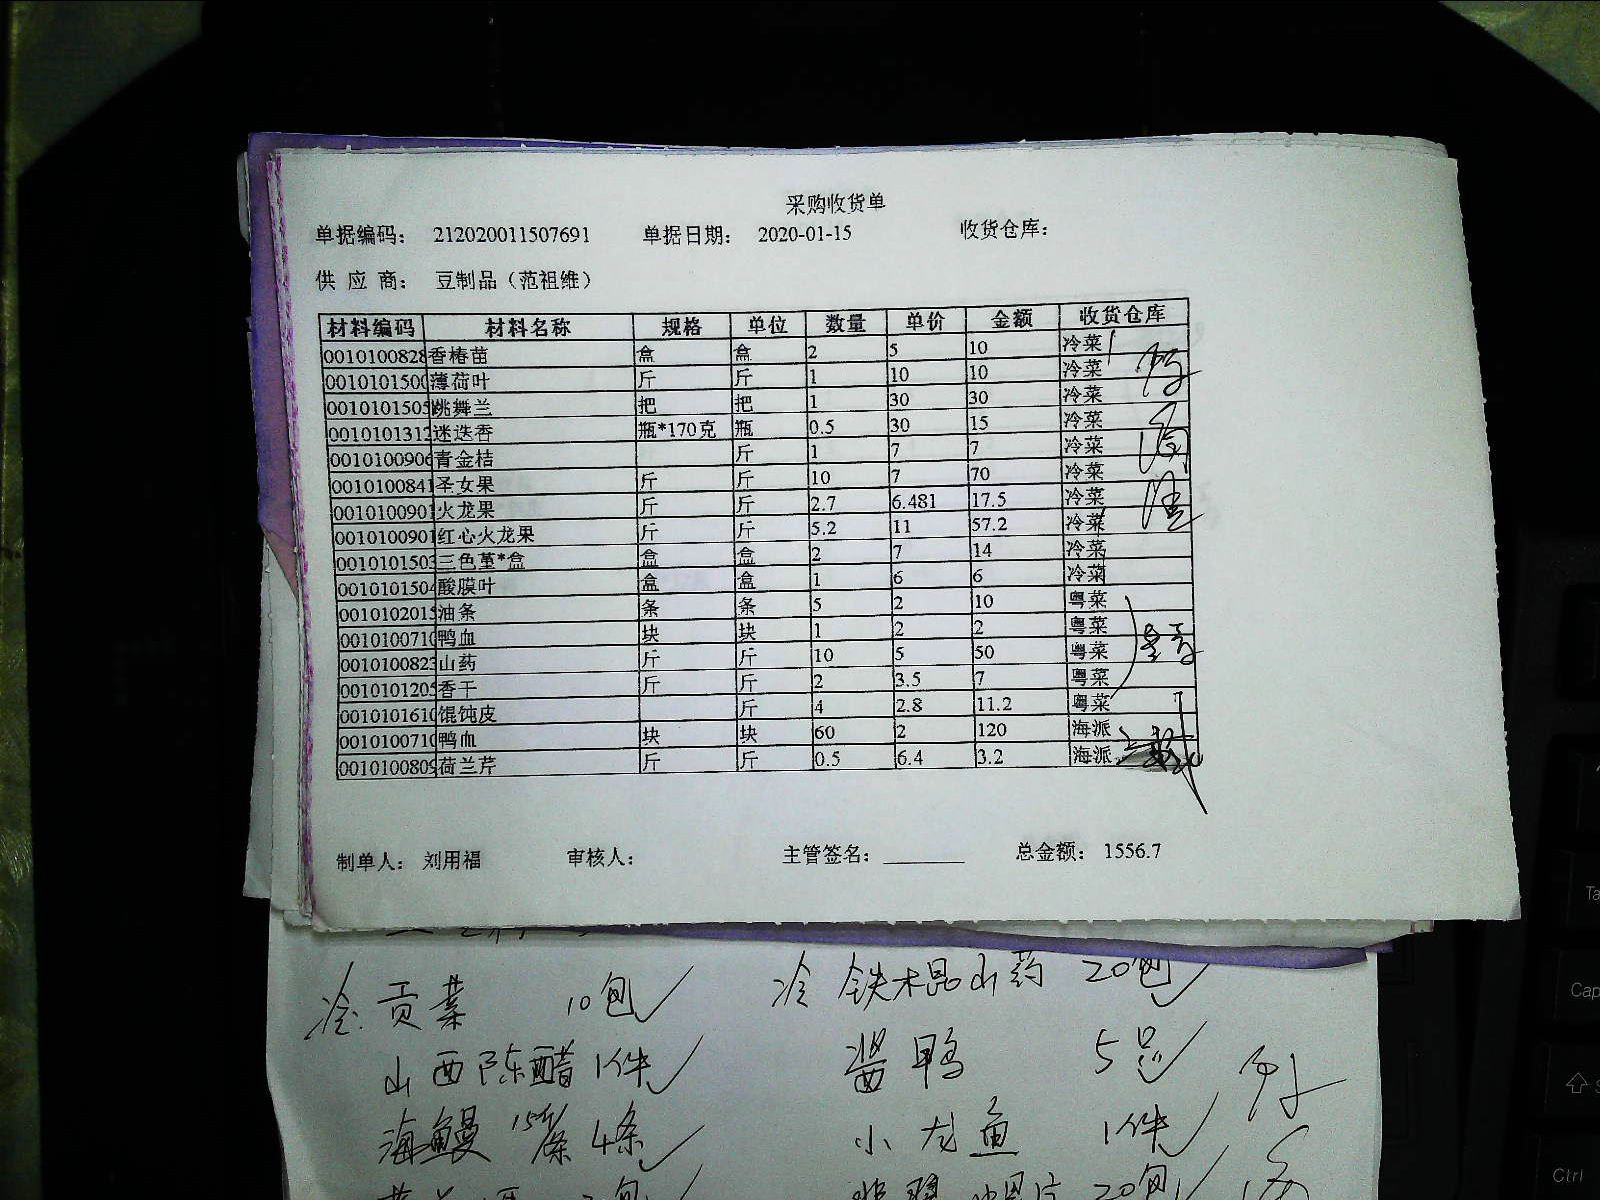 采购收货单
单据编码： 212020011507691 单据日期： 2020-01-15 收货仓库：
供 应 商： 豆制品（范祖维）
材料编码 材料名称 规格 单位 数量 单价 金额 收货仓库
0010100828 香椿苗 盒 盒 2 5 10 冷菜
001010150 薄荷叶 斤 斤 1 10 10 冷菜
0010101505 跳舞兰 把 把 1 30 30 冷菜
001010131 迷迭香 瓶*170克 瓶 0.5 30 15 冷菜
0010100906 青金桔 斤 1 7 7 冷菜
001010084 圣女果 斤 斤 10 7 70 冷菜
001010090 火龙果 斤 斤 2.7 6.481 17.5 冷菜
001010090 红心火龙果 斤 斤 5.2 11 57.2 冷菜
001010150 三色堇*盒 盒 盒 2 7 14 冷菜
001010150 酸膜叶 盒 盒 1 6 6 冷菜
001010201 油条 条 条 5 2 10 粤菜
001010071 鸭血 块 块 1 2 2 粤菜
001010082 山药 斤 斤 10 5 50 粤菜
001010120 香干 斤 斤 2 3.5 7 粤菜
001010161 馄饨皮 斤 4 2.8 11.2 粤菜
001010071 鸭血 块 块 60 2 120 海派
001010080 荷兰芹 斤 斤 0.5 6.4 3.2 海派
制单人： 刘用福 审核人： 主管签名： 总金额： 1556.7
冷 贡菜 10包 冷 铁木昆山药 20包
山西陈醋 1件 酱鸭 5只
海鳗 4条 小龙鱼 1件
20包